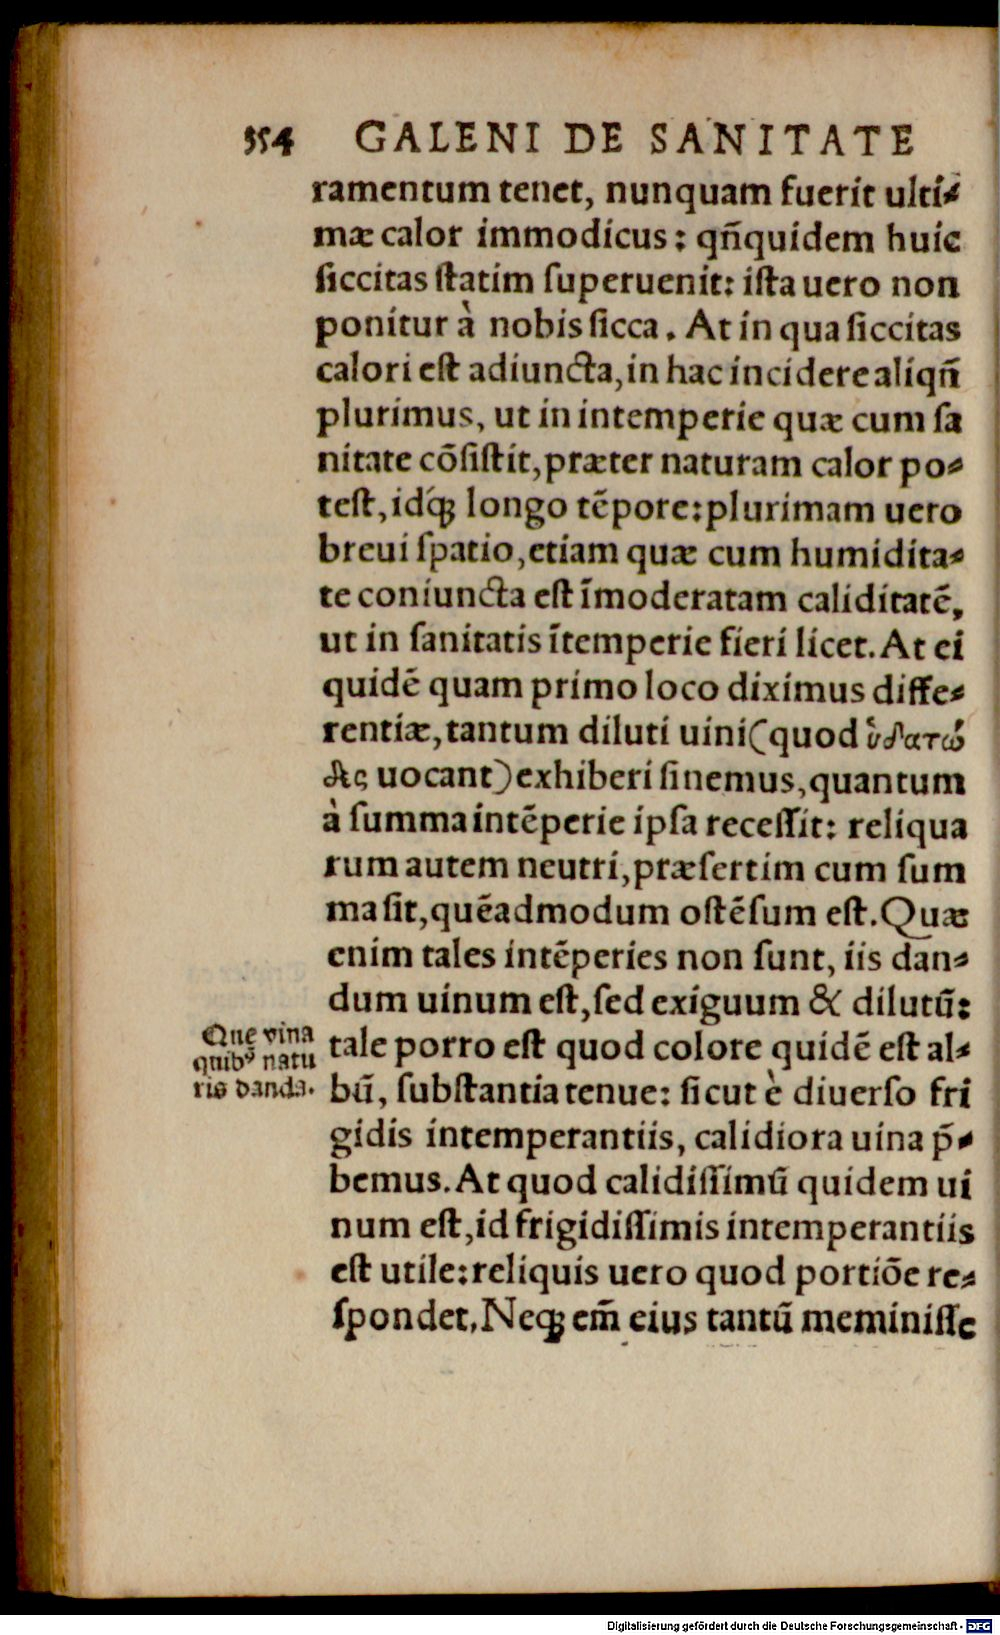 354 GALENI DE SANITATE
ramentum tenet, nunquam fuerit ulti⸗
mæ calor immodicus: qñquidem huic
ſiccitas ſtatim ſuperuenit: iſta uero non
ponitur à nobis ſicca. At in qua ſiccitas
calori eſt adiuncta, in hac incidere aliqñ
plurimus, ut in intemperie quæ cum ſa
nitate cõſiſtit, præter naturam calor po⸗
teſt, idq́ꝫ longo tẽpore: plurimam uero
breui ſpatio, etiam quæ cum humidita⸗
te coniuncta eſt ĩmoderatam caliditatẽ,
ut in ſanitatis ĩtemperie fieri licet. At ei
quidẽ quam primo loco diximus diffe⸗
rentiæ, tantum diluti uini (quod ὑδατώ
δες uocant) exhiberi ſinemus, quantum
à ſumma intẽperie ipſa receſſit: reliqua
rum autem neutri, præſertim cum ſum
ma ſit, quẽadmodum oſtẽſum eſt. Quæ
enim tales intẽperies non ſunt, iis dan⸗
dum uinum eſt, ſed exiguum & dilutũ:
Que vina
quibꝰ natu
ris danda.
tale porro eſt quod colore quidẽ eſt al⸗
bũ, ſubſtantia tenue: ſicut è diuerſo fri
gidis intemperantiis, calidiora uina p̃⸗
bemus. At quod calidiſſimũ quidem ui
num eſt, id frigidiſſimis intemperantiis
eſt utile: reliquis uero quod portiõe re⸗
ſpondet. Neqꝫ em̃ eius tantũ meminiſſe
Digitalisierung gefördert durch die Deutsche Forschungsgemeinschaft - DFG